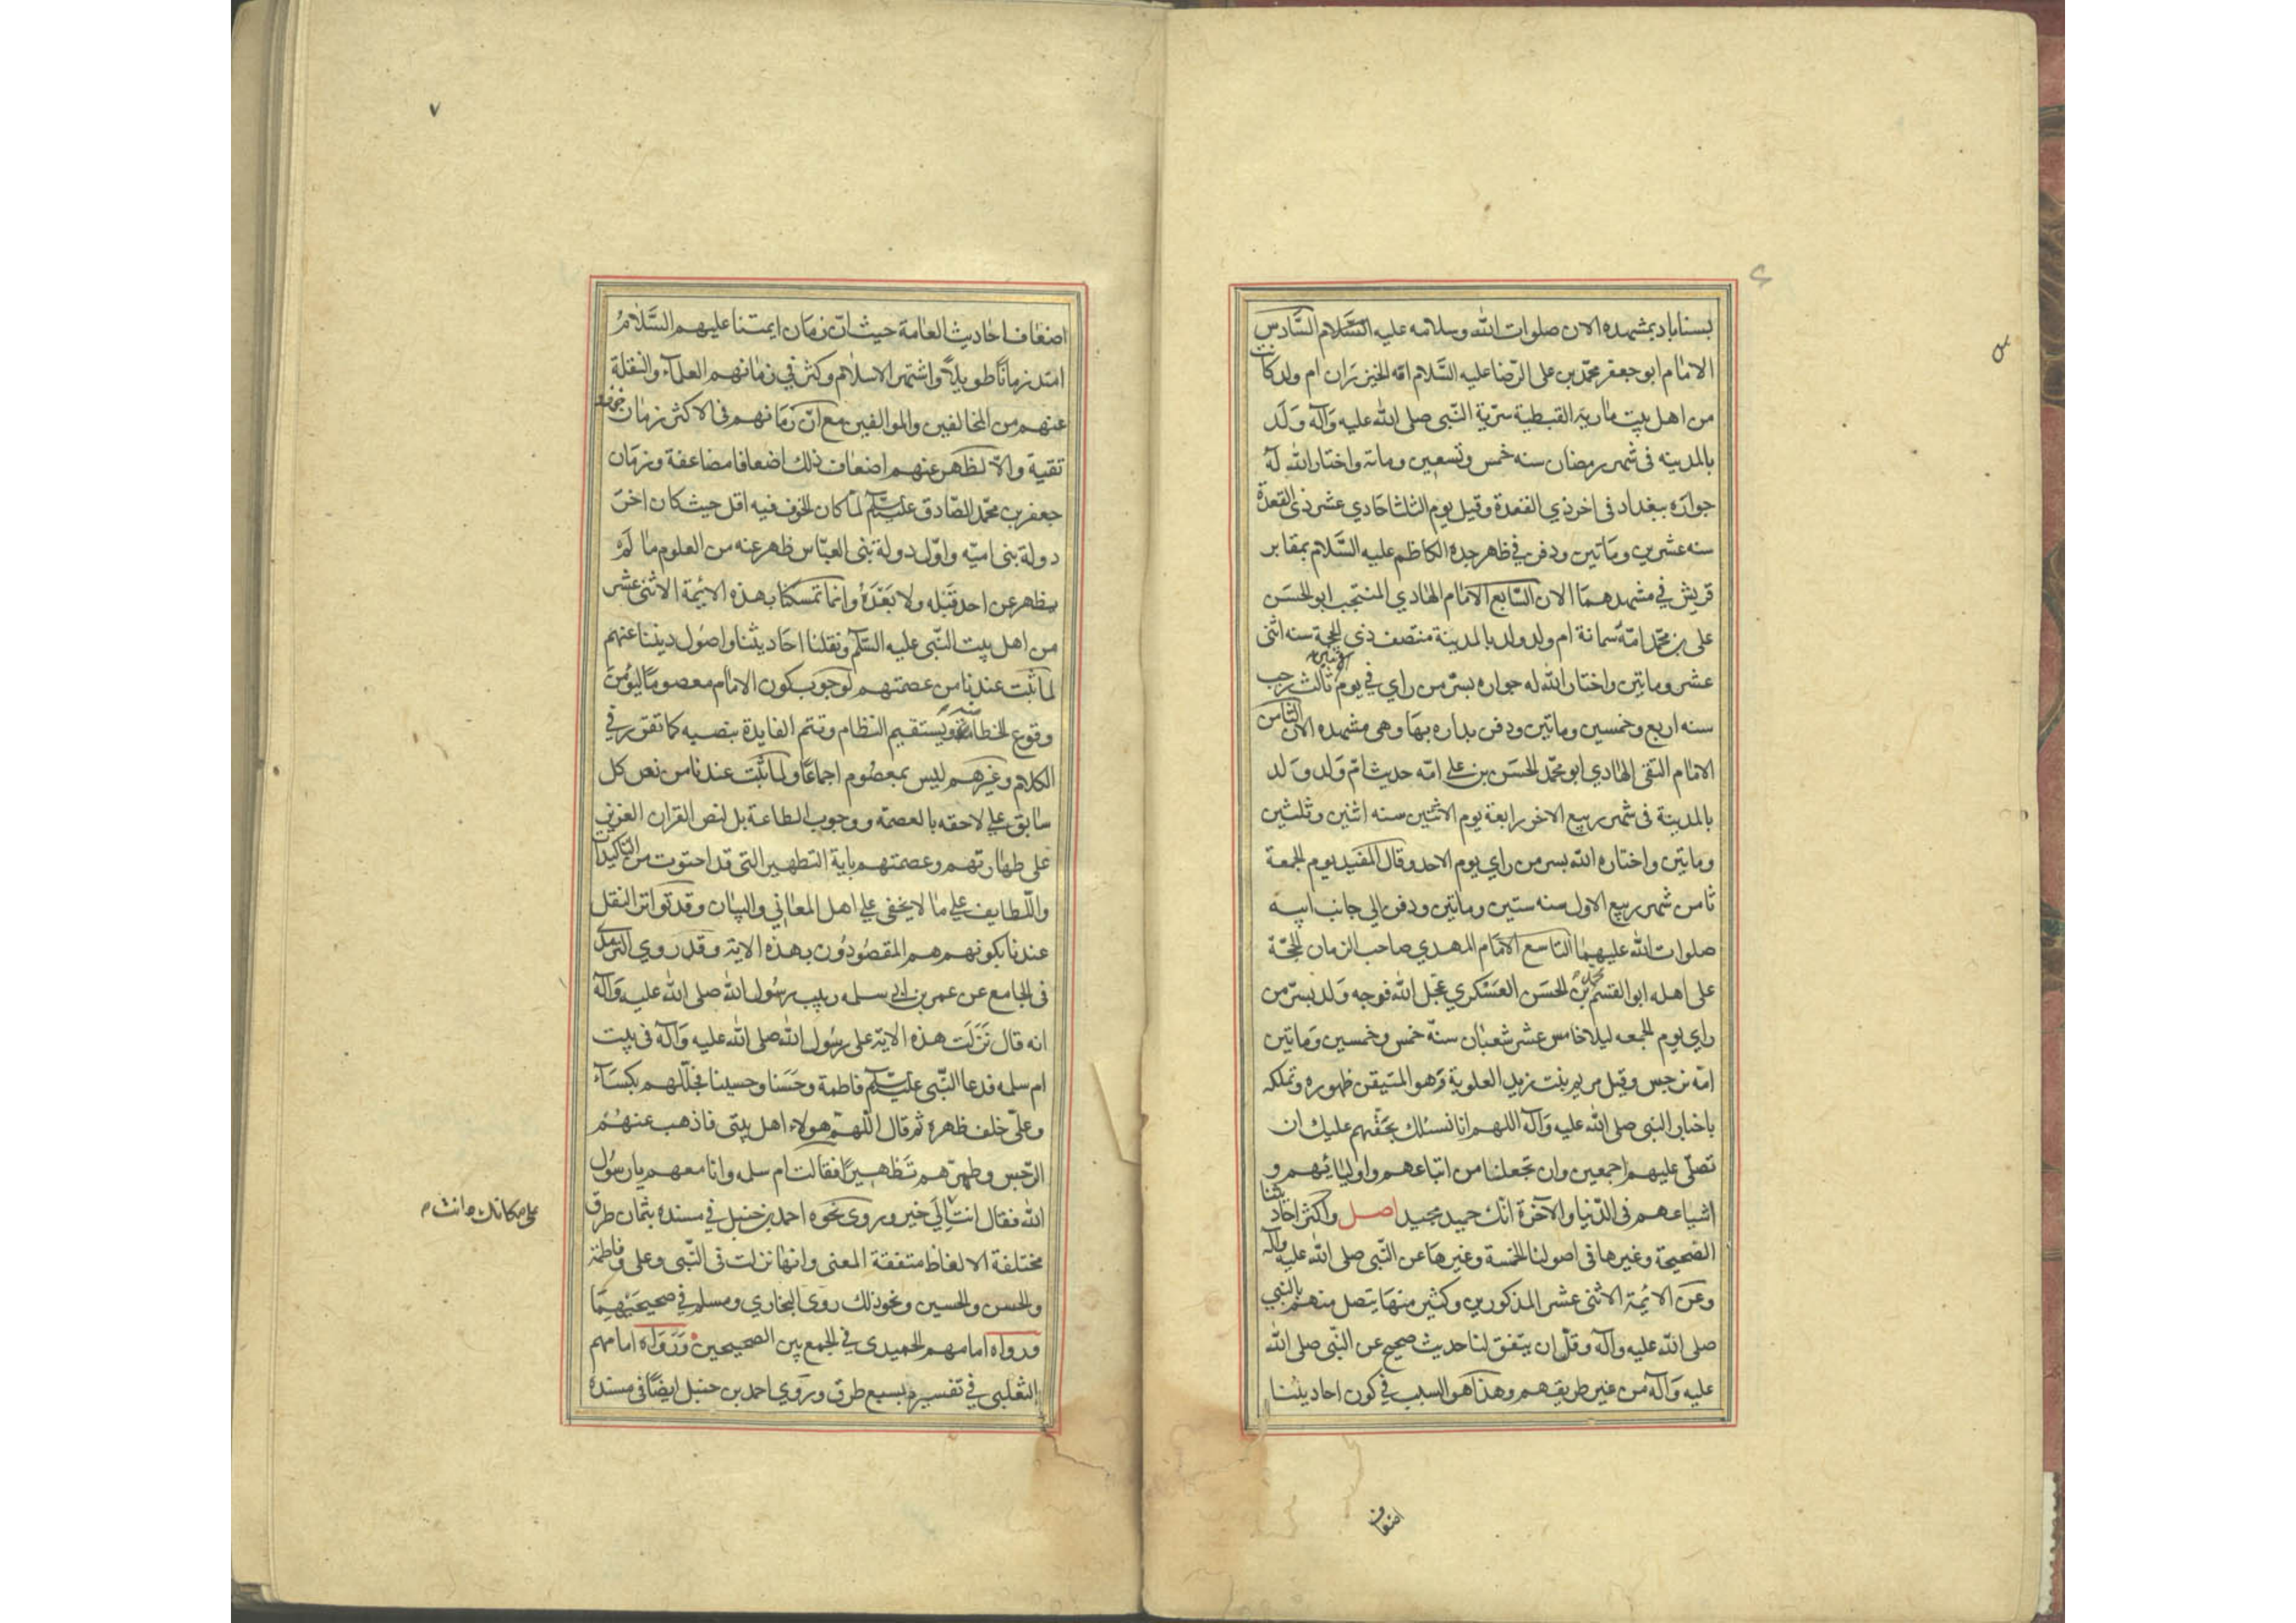 بسناباد بمشهده الان صلوات الله وسلامه عليه السلام السادس
الامام ابو جعفر محمد بن علی الرضا عليه السلام امّه الخيزران ام ولد كانت
من اهل بيت مارية القبطية سرّية النّبی صلی الله عليه وآله ولد
بالمدينه فی شهر رمضان سنه خمس وتسعين وماتة واختار الله له
جواره ببغداد فی اخر ذي القعدة وقيل يوم الثلثا حادي عشر ذی القعدة
سنه عشرين وماتين ودفن في ظهر جده الكاظم عليه السَّلام بمقابر
قريش في مشهدهما الان السّابع الامام الهادي المنتجب ابو الحسن
علی بن محمّد امّه سمانة ام ولد ولد بالمدينة منتصف ذي الحجة سنه اثنی
عشر وماتين واختار الله له جواره بسرّ من راي في يوم الاثنين ثالث رجب
سنه اربع وخمسين وماتين ودفن بداره بها وهی مشهده الان الثامن
الامام التقی الهادي ابو محمّد الحسن بن علي امّه حديث امّ ولد ولد
بالمدينة فی شهر ربيع الاخر رابعة يوم الاثنين سنه اثنين وثلثين
وماتين واختاره الله بسر من راي يوم الاحد وقال المفيد يوم الجمعة
ثامن شهر ربيع الاول سنه ستين وماتين ودفن الي جانب ابيه
صلوات الله عليهما التاسع الامام المهدي صاحب الزمان الحجّة
علی اهله ابو القسم محمد بن الحسن العسكري عجّل الله فرجه ولد بسرّ من
راي يوم الجمعه ليلا خامس عشر شعبان سنّه خمس وخمسين وماتين
امّه نرجس وقيل مريم بنت زيد العلوية وهو المتيقن ظهوره وتملكه
باخبار النبی صلی الله عليه وآله اللهم انا نسئلك بحقّهم عليك ان
تصلّی عليهم اجمعين وان تجعلنا من اتباعهم واوليائهم و
اشياعهم فی الدّنيا والآخرة انّك حميد مجيد اصل واكثر احاديثنا
الصحيحة وغيرها فی اصولنا الخمسة وغيرها عن النّبی صلی الله عليه وآله
وعن الائمة الاثنی عشر المذكورين وكثير منها يتصل منهم بالنبي
صلی الله عليه وآله وقلّ ان يتفق لنا حديث صحيح عن النّبی صلی الله
عليه وآله من غير طريقهم وهذا هو السبب في كون احاديثنا
اضعاف
٧
اضعاف احاديث العامة حيث انّ زمان ايمتنا عليهم السَّلام
امتد زمانًا طويلًا واشتهر الاسلام وكثر في زمانهم العلمآء والنقلة
عنهم من المخالفين والموالفين مع انّ زمانهم فی الاكثر زمان خوف و
تقية والّا لظهر عنهم اضعاف ذلك اضعافا مضاعفة وزمان
جعفر بن محمّد الصّادق عليه السّلم لمّا كان الخوف فيه اقل حيث كان اخر
دولة بنی اميّه واوّل دولة بنی العبّاس ظهر عنه من العلوم ما لم
يظهر عن احد قبله ولا بعده وانما تمسكنا بهذه الايمّة الاثنی عشر
من اهل بيت النّبی عليه السّلم ونقلنا احاديثنا واصول ديننا عنهم
لما ثبت عندنا من عصمتهم لوجوب كون الامام معصومًا ليؤمن
وقوع الخطا منه ويستقيم النظام وتتم الفايدة بنصبه كما تقرر في
الكلام وغيرهم ليس بمعصوم اجماعًا ولما ثبت عندنا من نص كل
سابق علي لاحقه بالعصمة ووجوب الطاعة بل لنص القران العزيز
علی طهارتهم وعصمتهم باية التطهير التی قد احتوت من التاكيدات
واللّطايف علي ما لا يخفی علي اهل المعاني والبيان وقد تواتر النقل
عندنا بكونهم هم المقصودون بهذه الاية وقد روي الترمذي
فی الجامع عن عمر بن ابي سلمه ربيب رسول الله صلی الله عليه وآله
انه قال نزلت هذه الاية علی رسول الله صلی الله عليه وآله فی بيت
ام سلمه فدعا النّبی عليه السّلم فاطمة وحسنا وحسينا فجلّلهم بكسآء
وعلّی خلف ظهره ثم قال اللّهم هولاء اهل بيتی فاذهب عنهم
الرّجس وطهّرهم تطهيرًا فقالت ام سلمه وانا معهم يا رسول
الله فقال انت الي خير وروی نحوه احمد بن حنبل في مسنده بثمان طرق
علی مكانك وانت م
مختلفة الالفاظ متفقة المعنی وانها نزلت فی النّبی وعلی وفاطمة
والحسن والحسين ونحو ذلك روی البخاري ومسلم في صحيحيهما
ورواه امامهم الحميدی في الجمع بين الصحيحين ورواه امامهم
الثعلبي في تفسيره بسبع طرق وروي احمد بن حنبل ايضًا فی مسنده